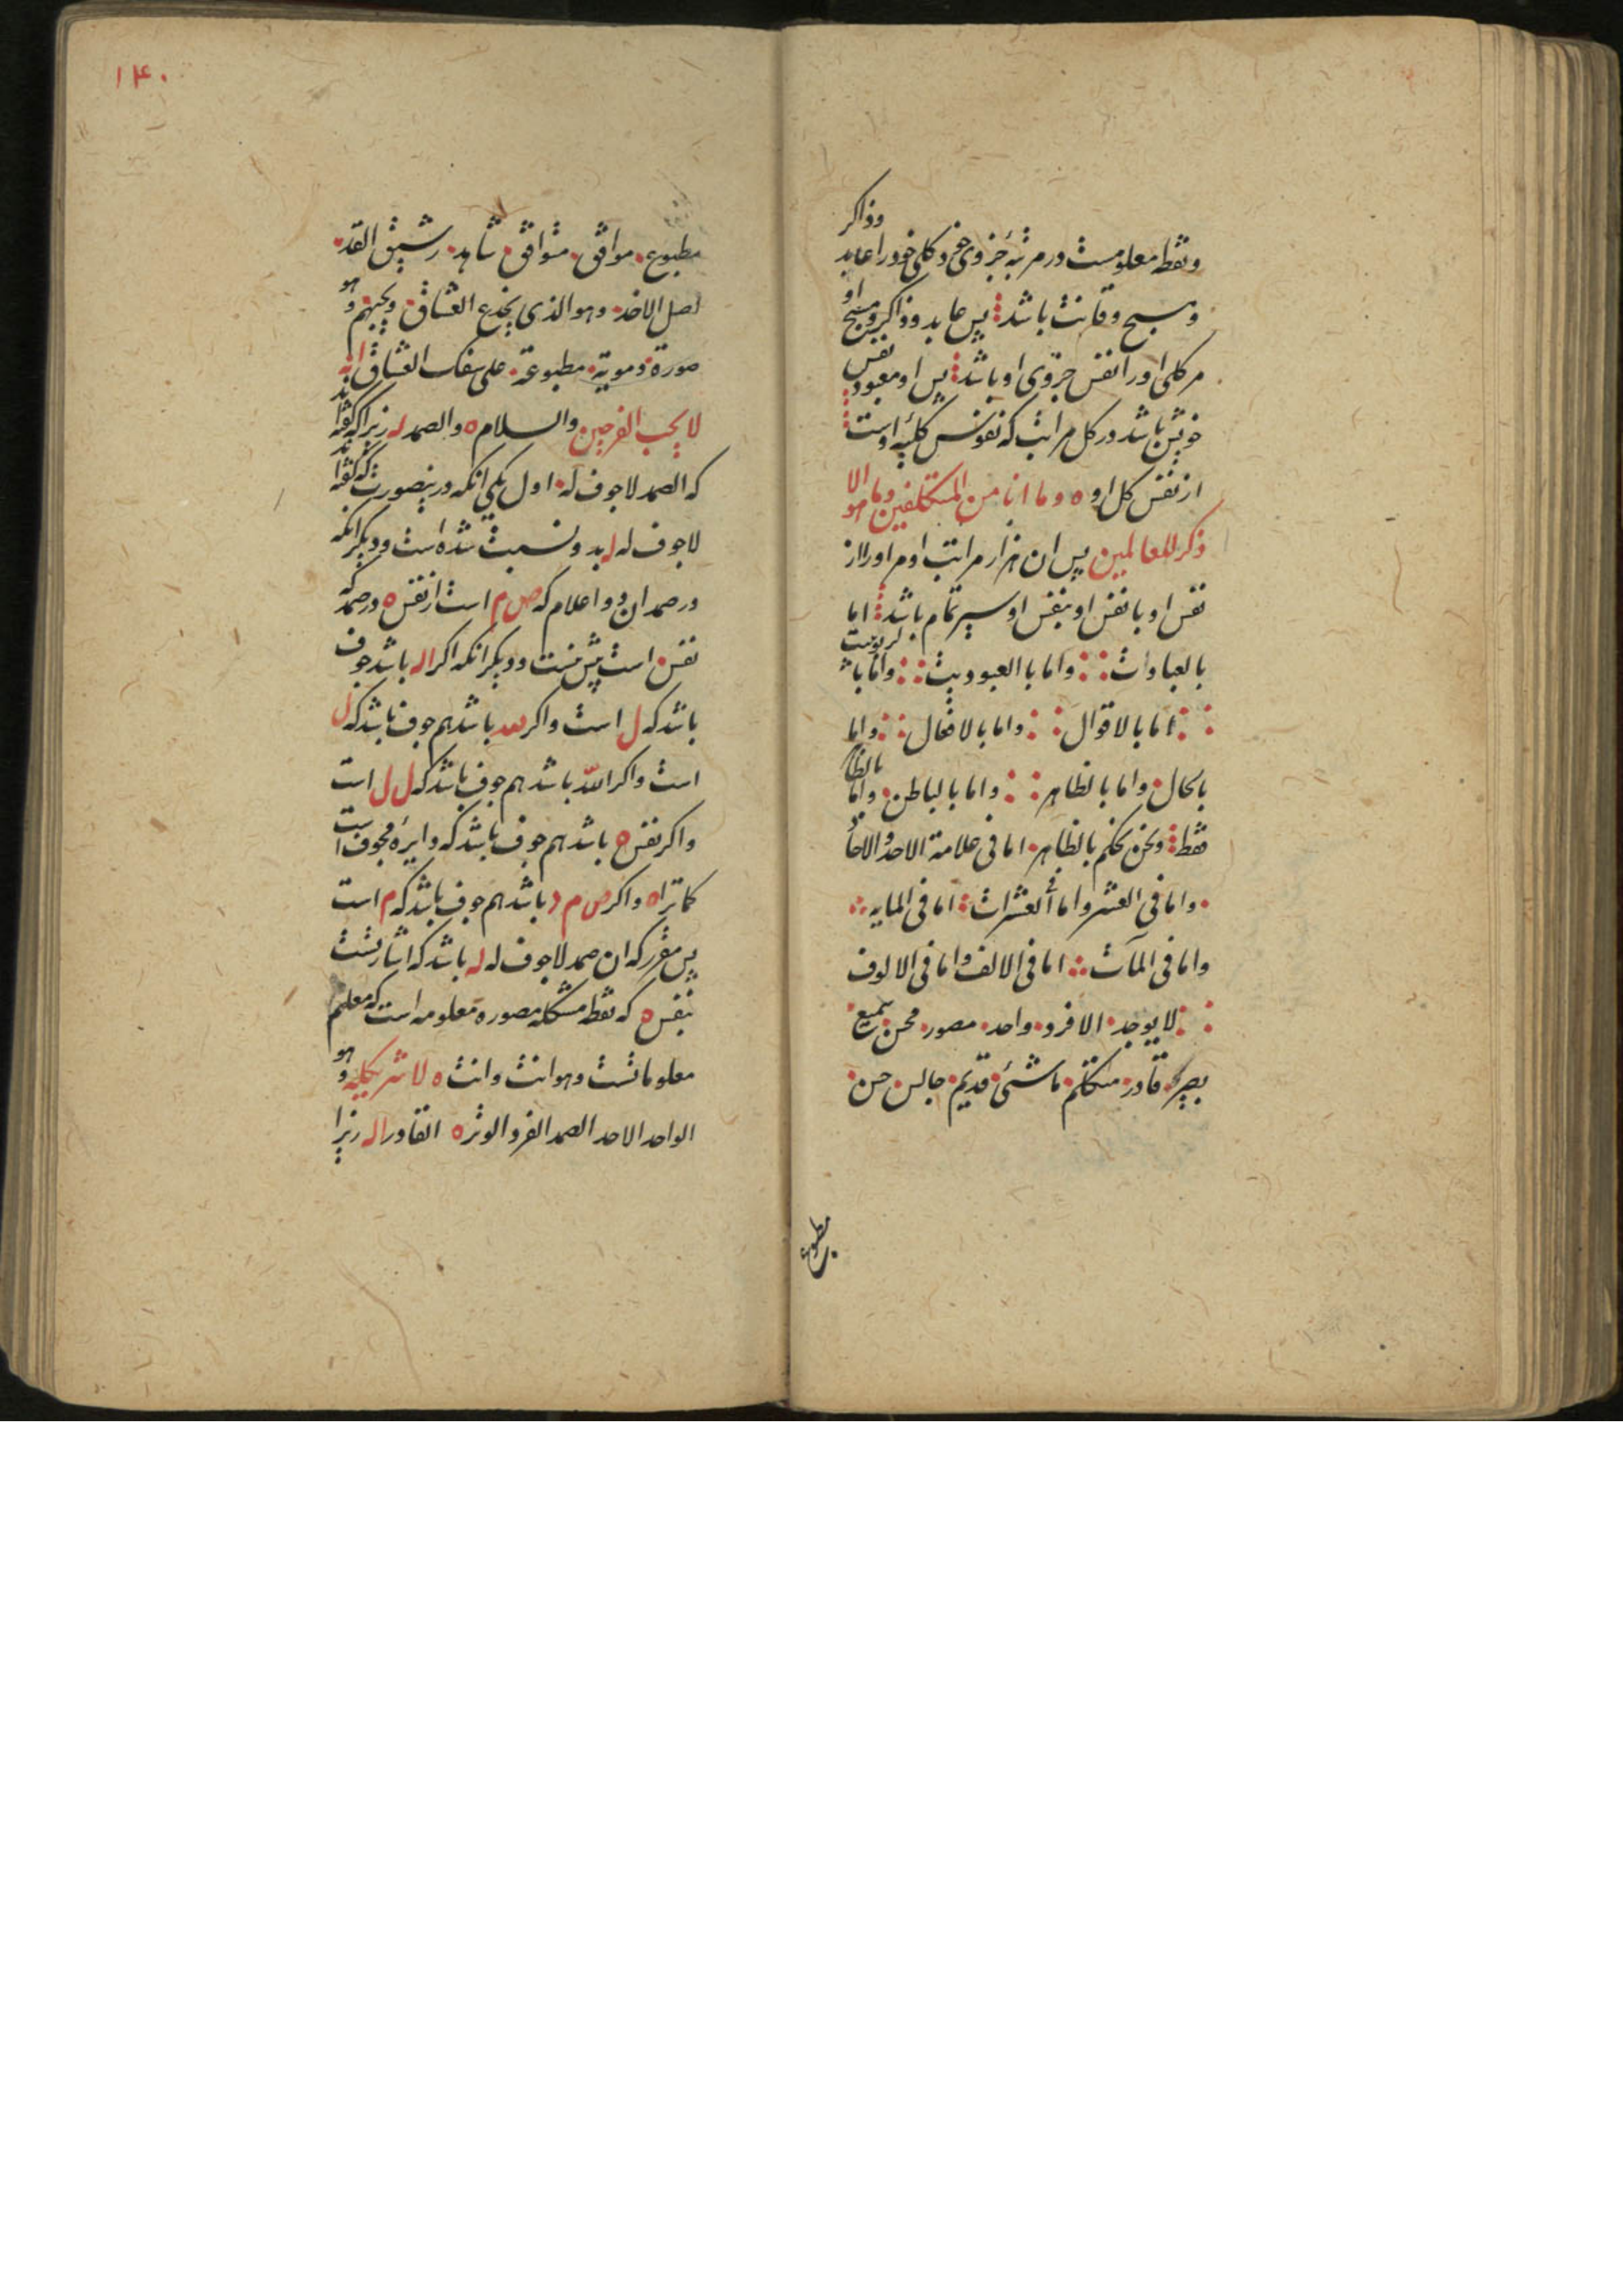 و نقطه معلومست در مرتبهٔ جزوی خود و کلی خود را عابد وذاکر
و مسبح و قانت باشد پس عابد و ذاکر و مسبح او
مر کلی او را نفس جزوی او باشد پس او معبود نفس
خویش باشد در کل مراتب که نفوس کلیه اوست
از نفس کل او ه وما انا من المتکلفین وما هو الا
ذکر للعالمین پس ان هزار مراتب او مر او را از
نفس او با نفس او بنفس او سیر تمام باشد اما
بالعبادات واما بالعبودیت واما با لربوبیت
اما بالاقوال واما بالافعال واما
بالحال واما بالظاهر واما بالباطن واما بالظا
فقط ونحن نحکم بالظاهر اما فی علامة الاحد والاحا
واما فی العشر واما فی العشرات اما فی المایه
واما فی المآت اما فی الالف واما فی الالوف
لا یوجد الا فرد واحد مصور محسن سمیع
بصیر قادر متکلم ماشئ قدیم جالس حسن
مطبوع
۱۴۰
مطبوع موافق متوافق شاهد رشیق القد
اصل الاخذ وهو الذی یخدع العشاق ویحبهم وهو
صورة دمویة مطبوعة علی سفک العشاق انه
لا یحب الفرحین والسلام ه والصمد له زیرا که گفته اند
که الصمد لا جوف له اول یکی انکه در ینصورت که گفته اند
لا جوف له ل بد و نسبت شده است و دیگر انکه
در صمد ان دو اعلام که ص م است از نفس ه در صمد که
نفس است پیش نیست و دیگر انکه اکر اله باشد جوف
باشد که ل است و اکر لله باشد هم جوف باشد که ل
است و اکر الله باشد هم جوف باشد که ل ل است
و اکر نفس ه باشد هم جوف باشد که دایره مجوف است
کما تراه و اکر ص م د باشد هم جوف باشد که م است
پس مقرر که ان صمد لا جوف له له باشد که اشارتست
بنفس ه که نقطه مشکله مصوره معلومه است که معلم
معلوماتست وهو انت وانت ه لا شریک له وهو
الواحد الاحد الصمد الفرد الوتر ه القادر اله زیرا